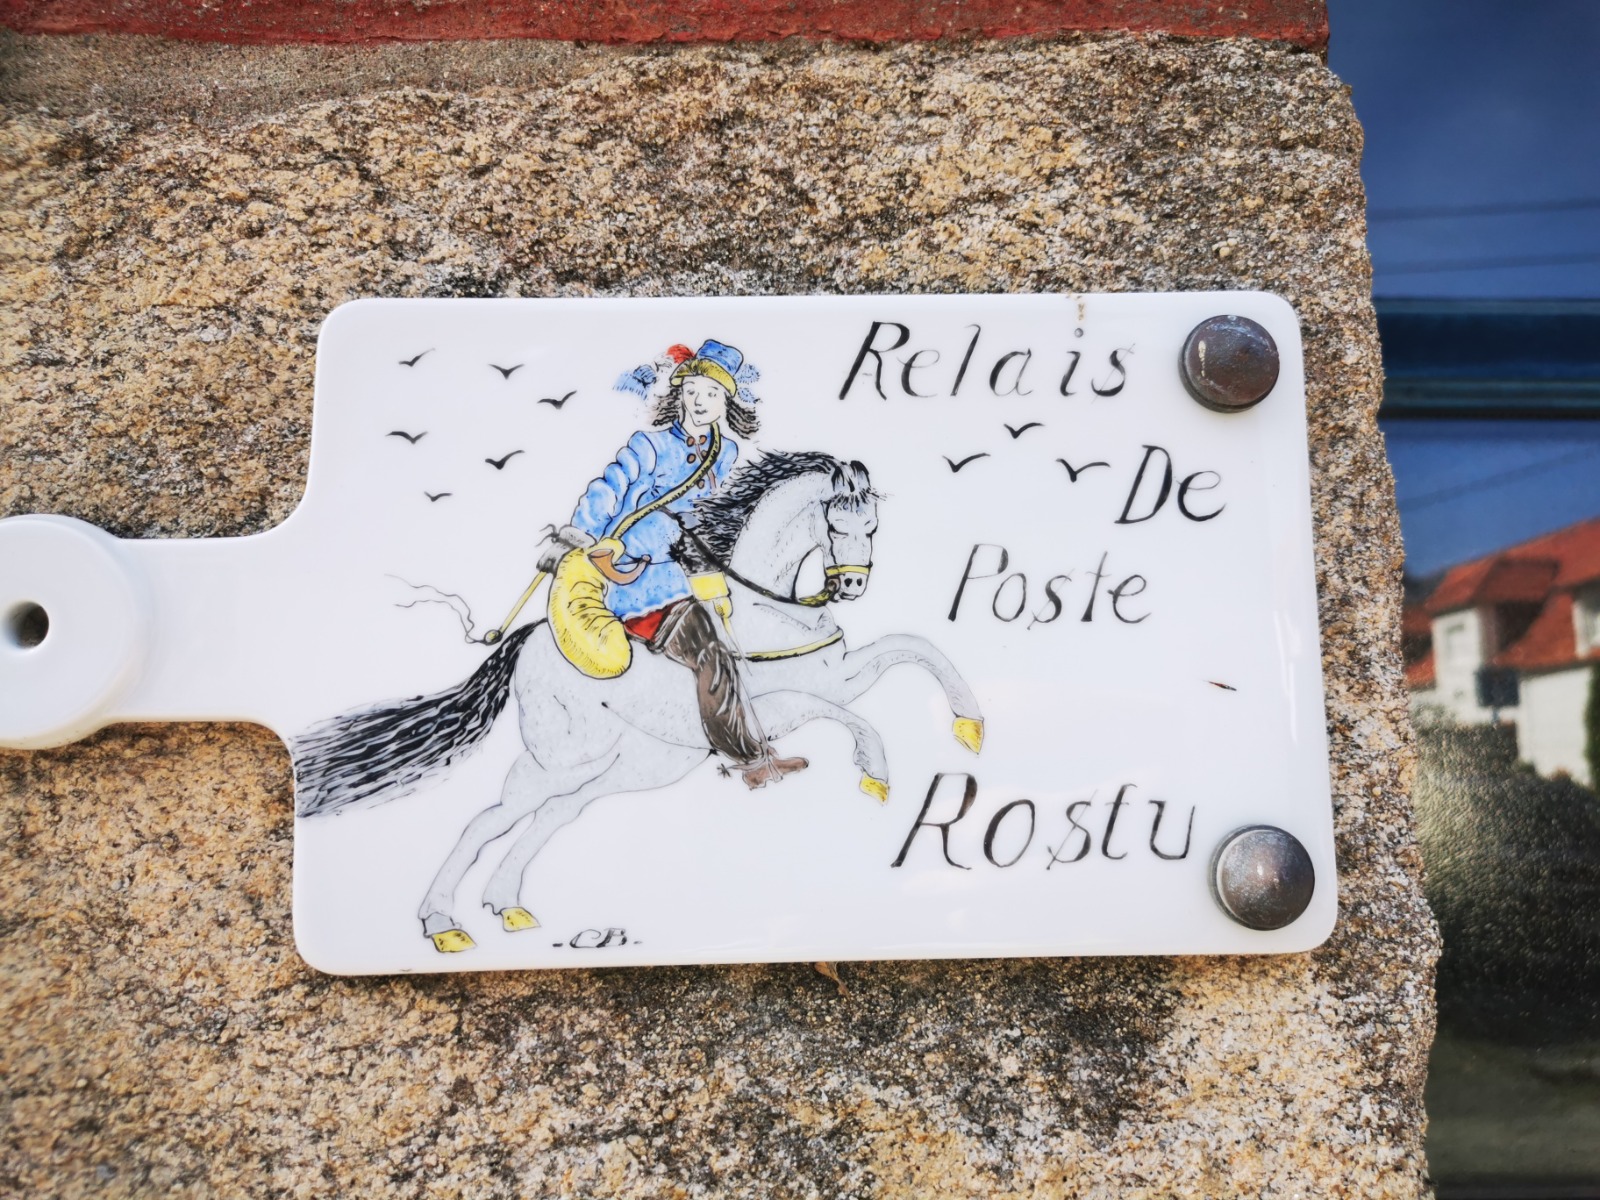 Relais
De
Poste
Rostu
-CB-